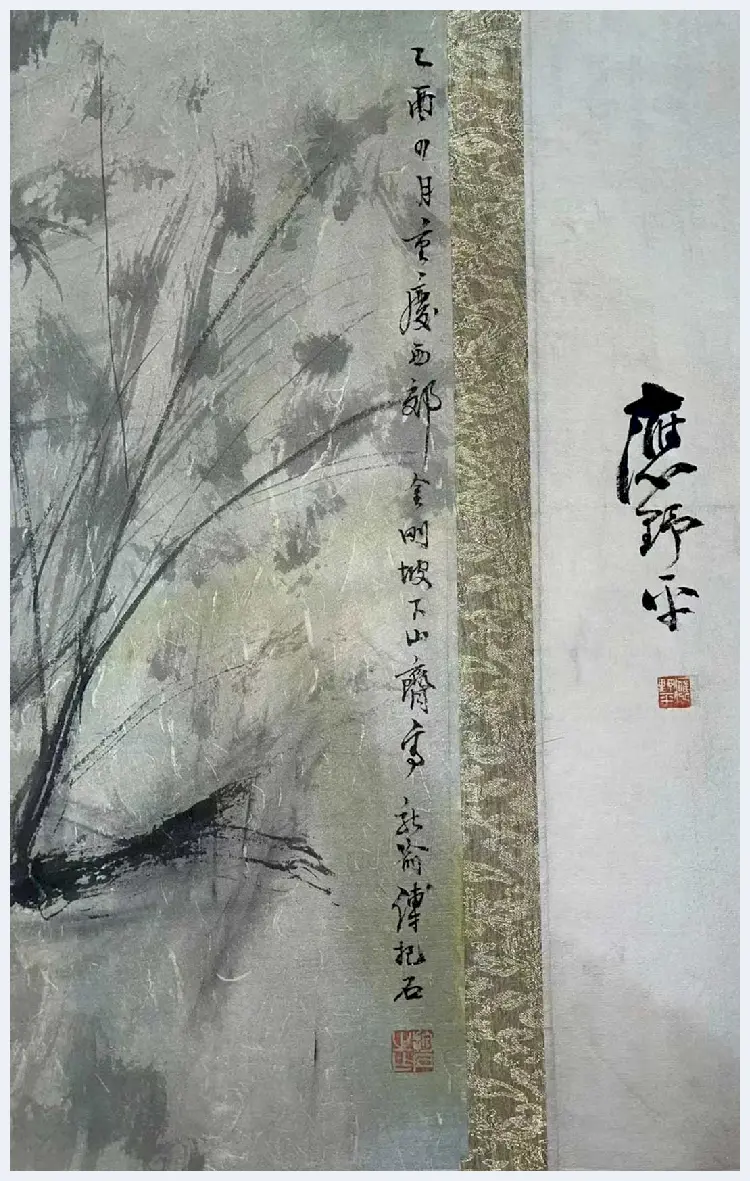 應野平
乙酉四月重慶西郊金剛坡下山齋寫新喻傅抱石